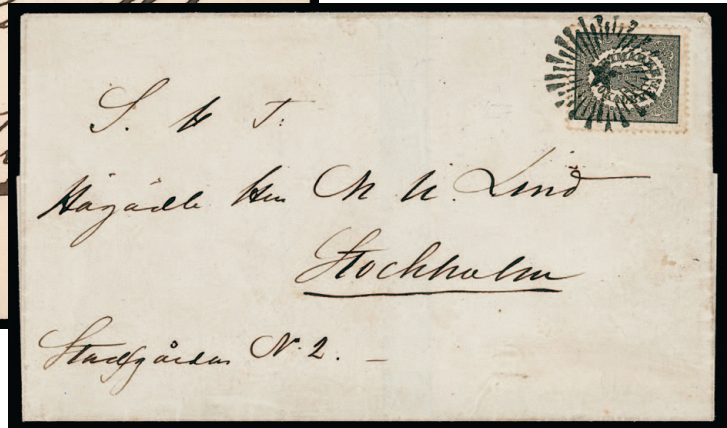 S. H. T:
Högädle Herr M. U. Lind
Stockholm
Stadsgården N. 2. —